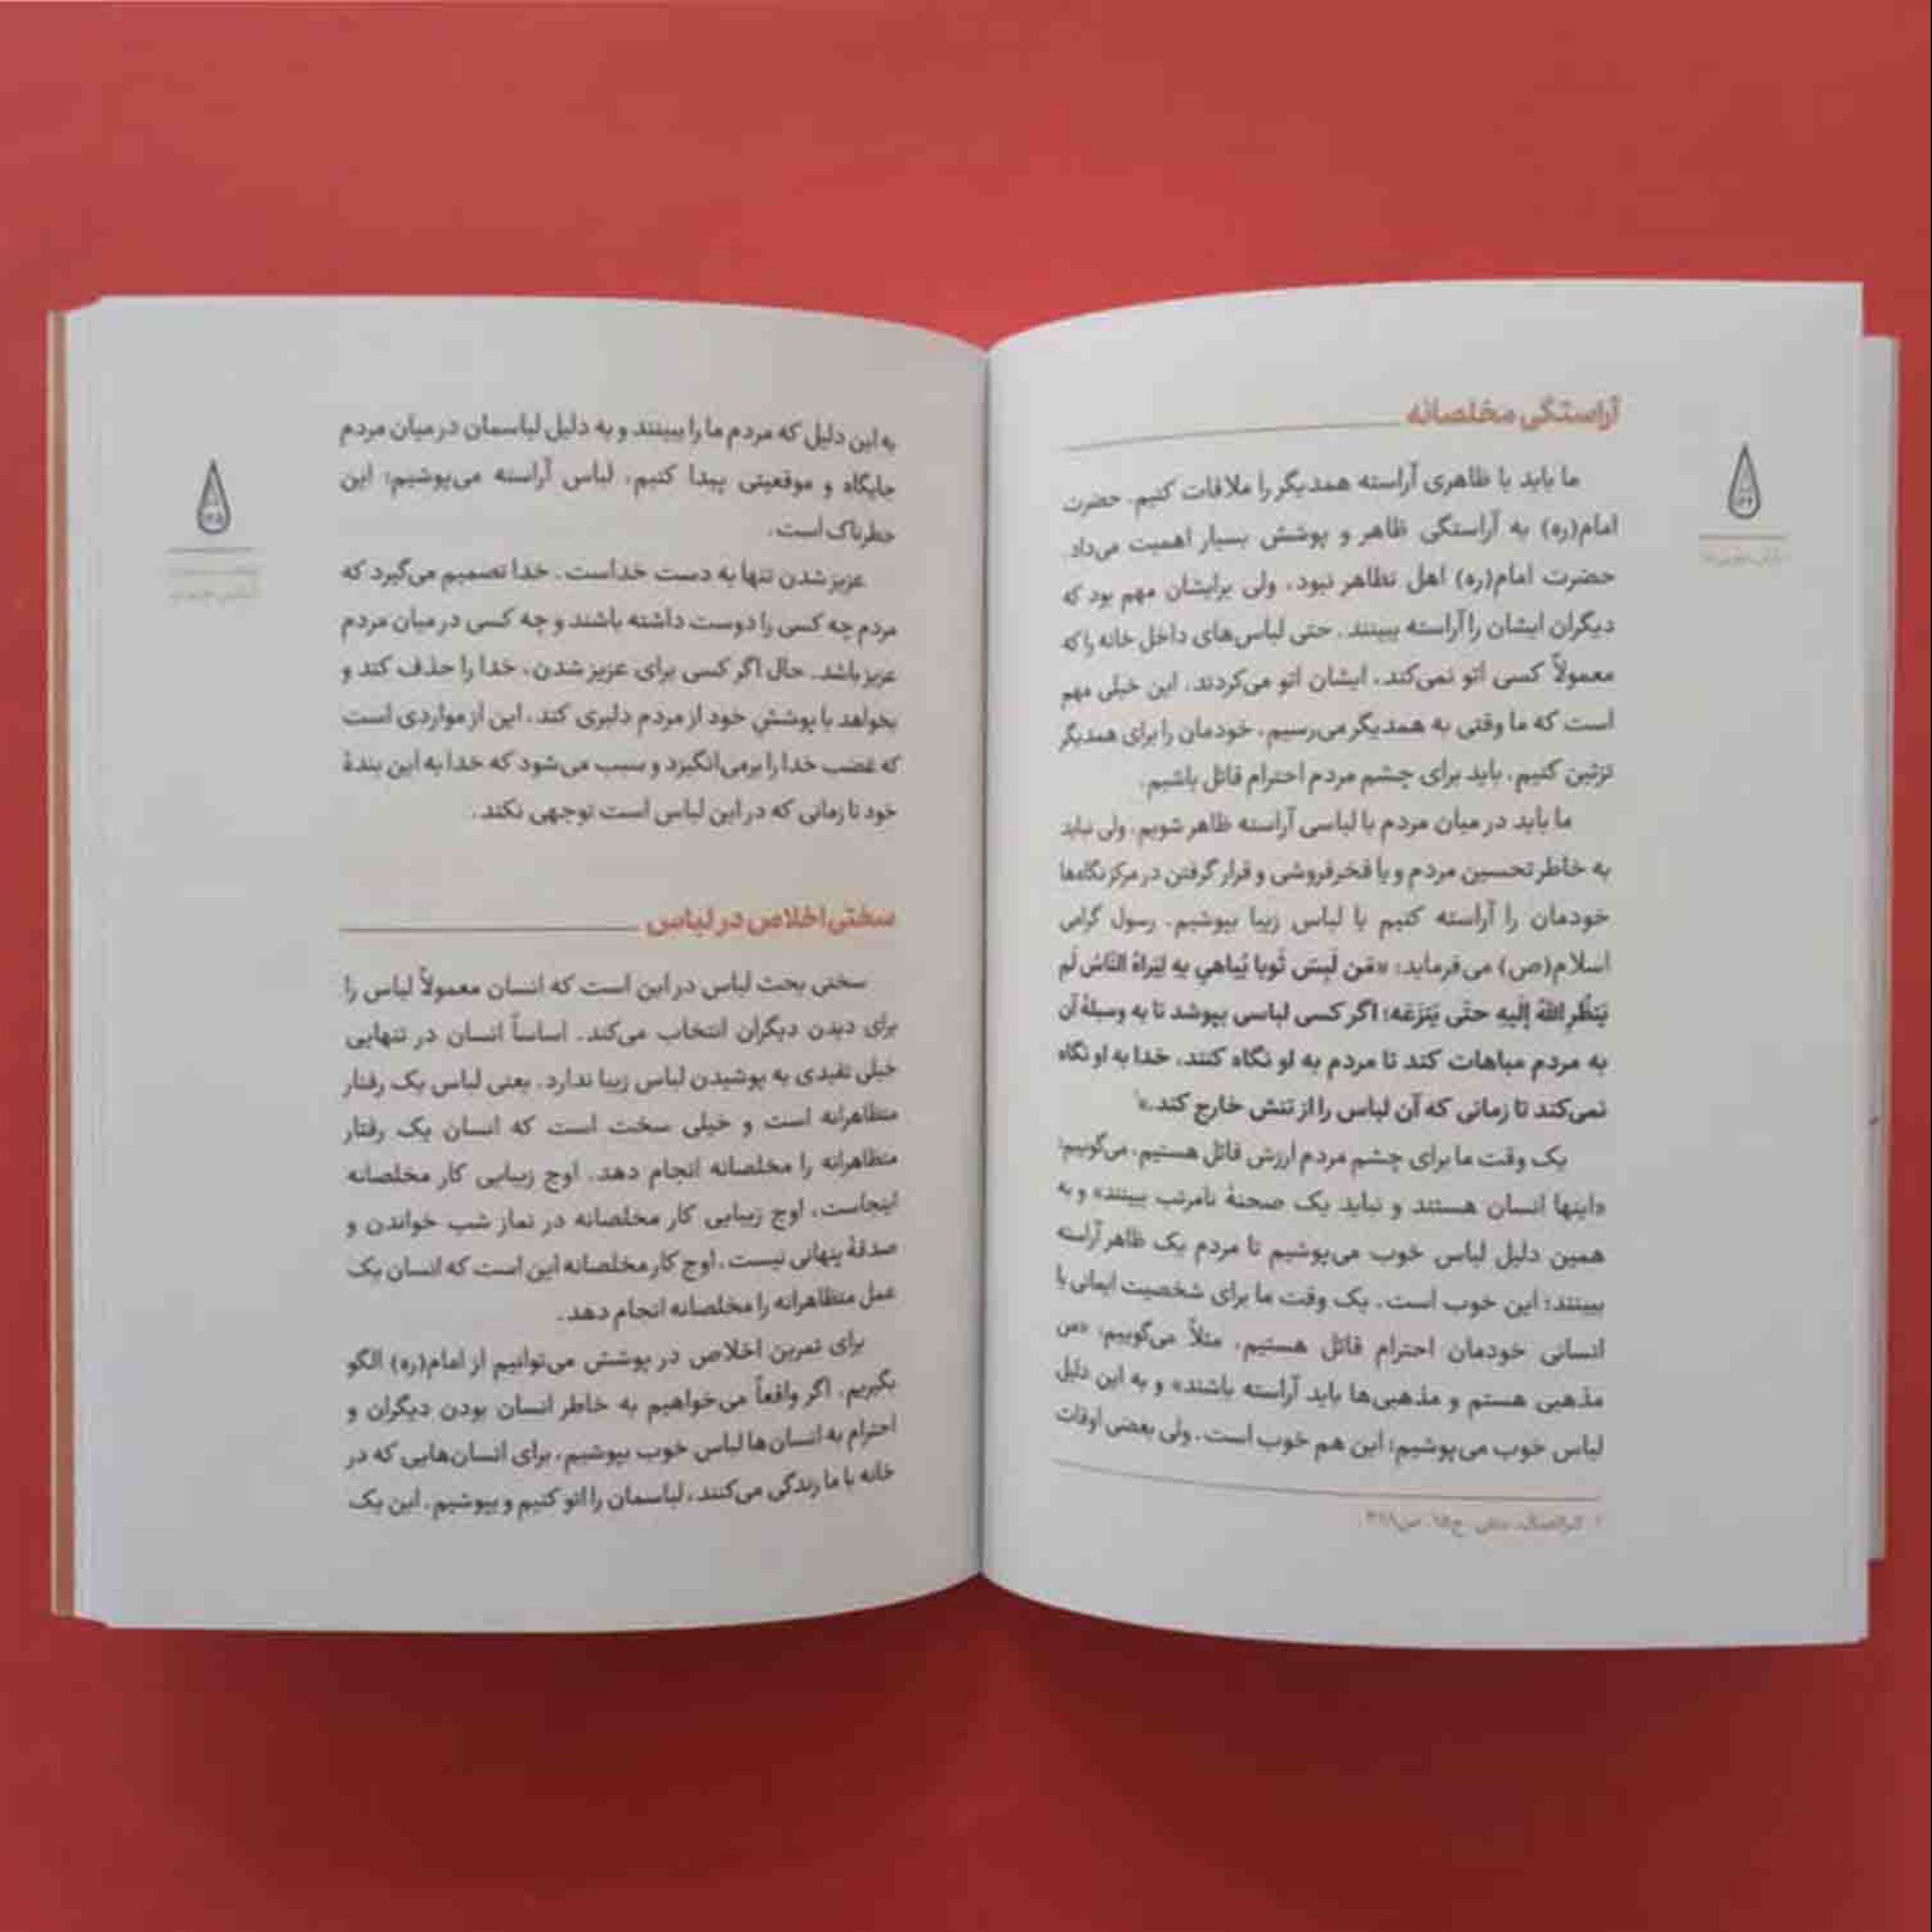 آراستگی مخلصانه
ما باید با ظاهری آراسته همدیگر را ملاقات کنیم. حضرت
امام(ره) به آراستگی ظاهر و پوشش بسیار اهمیت می‌داد.
حضرت امام(ره) اهل تظاهر نبود، ولی برایشان مهم بود که
دیگران ایشان را آراسته ببینند. حتی لباس‌های داخل خانه را که
معمولاً کسی اتو نمی‌کند، ایشان اتو می‌کردند. این خیلی مهم
است که ما وقتی به همدیگر می‌رسیم، خودمان را برای همدیگر
تزئین کنیم. باید برای چشم مردم احترام قائل باشیم.
ما باید در میان مردم با لباسی آراسته ظاهر شویم، ولی نباید
به خاطر تحسین مردم و یا فخرفروشی و قرار گرفتن در مرکز نگاه‌ها
خودمان را آراسته کنیم یا لباس زیبا بپوشیم. رسول گرامی
اسلام(ص) می‌فرماید: «مَن لَبِسَ ثَوبا يُباهي بِهِ لِيَراهُ النّاسُ لَم
يَنظُرِ اللّهُ إلَيهِ حتّى يَنزَعَه؛ اگر کسی لباسی بپوشد تا به وسیلهٔ آن
به مردم مباهات کند تا مردم به او نگاه کنند، خدا به او نگاه
نمی‌کند تا زمانی که آن لباس را از تنش خارج کند.»۱
یک وقت ما برای چشم مردم ارزش قائل هستیم، می‌گوییم:
«اینها انسان هستند و نباید یک صحنهٔ نامرتب ببینند» و به
همین دلیل لباس خوب می‌پوشیم تا مردم یک ظاهر آراسته
ببینند؛ این خوب است. یک وقت ما برای شخصیت ایمانی یا
انسانی خودمان احترام قائل هستیم، مثلاً می‌گوییم: «من
مذهبی هستم و مذهبی‌ها باید آراسته باشند» و به این دلیل
لباس خوب می‌پوشیم؛ این هم خوب است. ولی بعضی اوقات
به این دلیل که مردم ما را ببینند و به دلیل لباسمان در میان مردم
جایگاه و موقعیتی پیدا کنیم، لباس آراسته می‌پوشیم؛ این
خطرناک است.
عزیز شدن تنها به دست خداست. خدا تصمیم می‌گیرد که
مردم چه کسی را دوست داشته باشند و چه کسی در میان مردم
عزیز باشد. حال اگر کسی برای عزیز شدن، خدا را حذف کند و
بخواهد با پوشش خود از مردم دلبری کند، این از مواردی است
که غضب خدا را برمی‌انگیزد و سبب می‌شود که خدا به این بندهٔ
خود تا زمانی که در این لباس است توجهی نکند.
سختی اخلاص در لباس
سختی بحث لباس در این است که انسان معمولاً لباس را
برای دیدن دیگران انتخاب می‌کند. اساساً انسان در تنهایی
خیلی تقیدی به پوشیدن لباس زیبا ندارد. یعنی لباس یک رفتار
متظاهرانه است و خیلی سخت است که انسان یک رفتار
متظاهرانه را مخلصانه انجام دهد. اوج زیبایی کار مخلصانه
اینجاست، اوج زیبایی کار مخلصانه در نماز شب خواندن و
صدقهٔ پنهانی نیست. اوج کار مخلصانه این است که انسان یک
عمل متظاهرانه را مخلصانه انجام دهد.
برای تمرین اخلاص در پوشش می‌توانیم از امام(ره) الگو
بگیریم. اگر واقعاً می‌خواهیم به خاطر انسان بودن دیگران و
احترام به انسان‌ها لباس خوب بپوشیم، برای انسان‌هایی که در
خانه با ما زندگی می‌کنند، لباسمان را اتو کنیم و بپوشیم. این یک